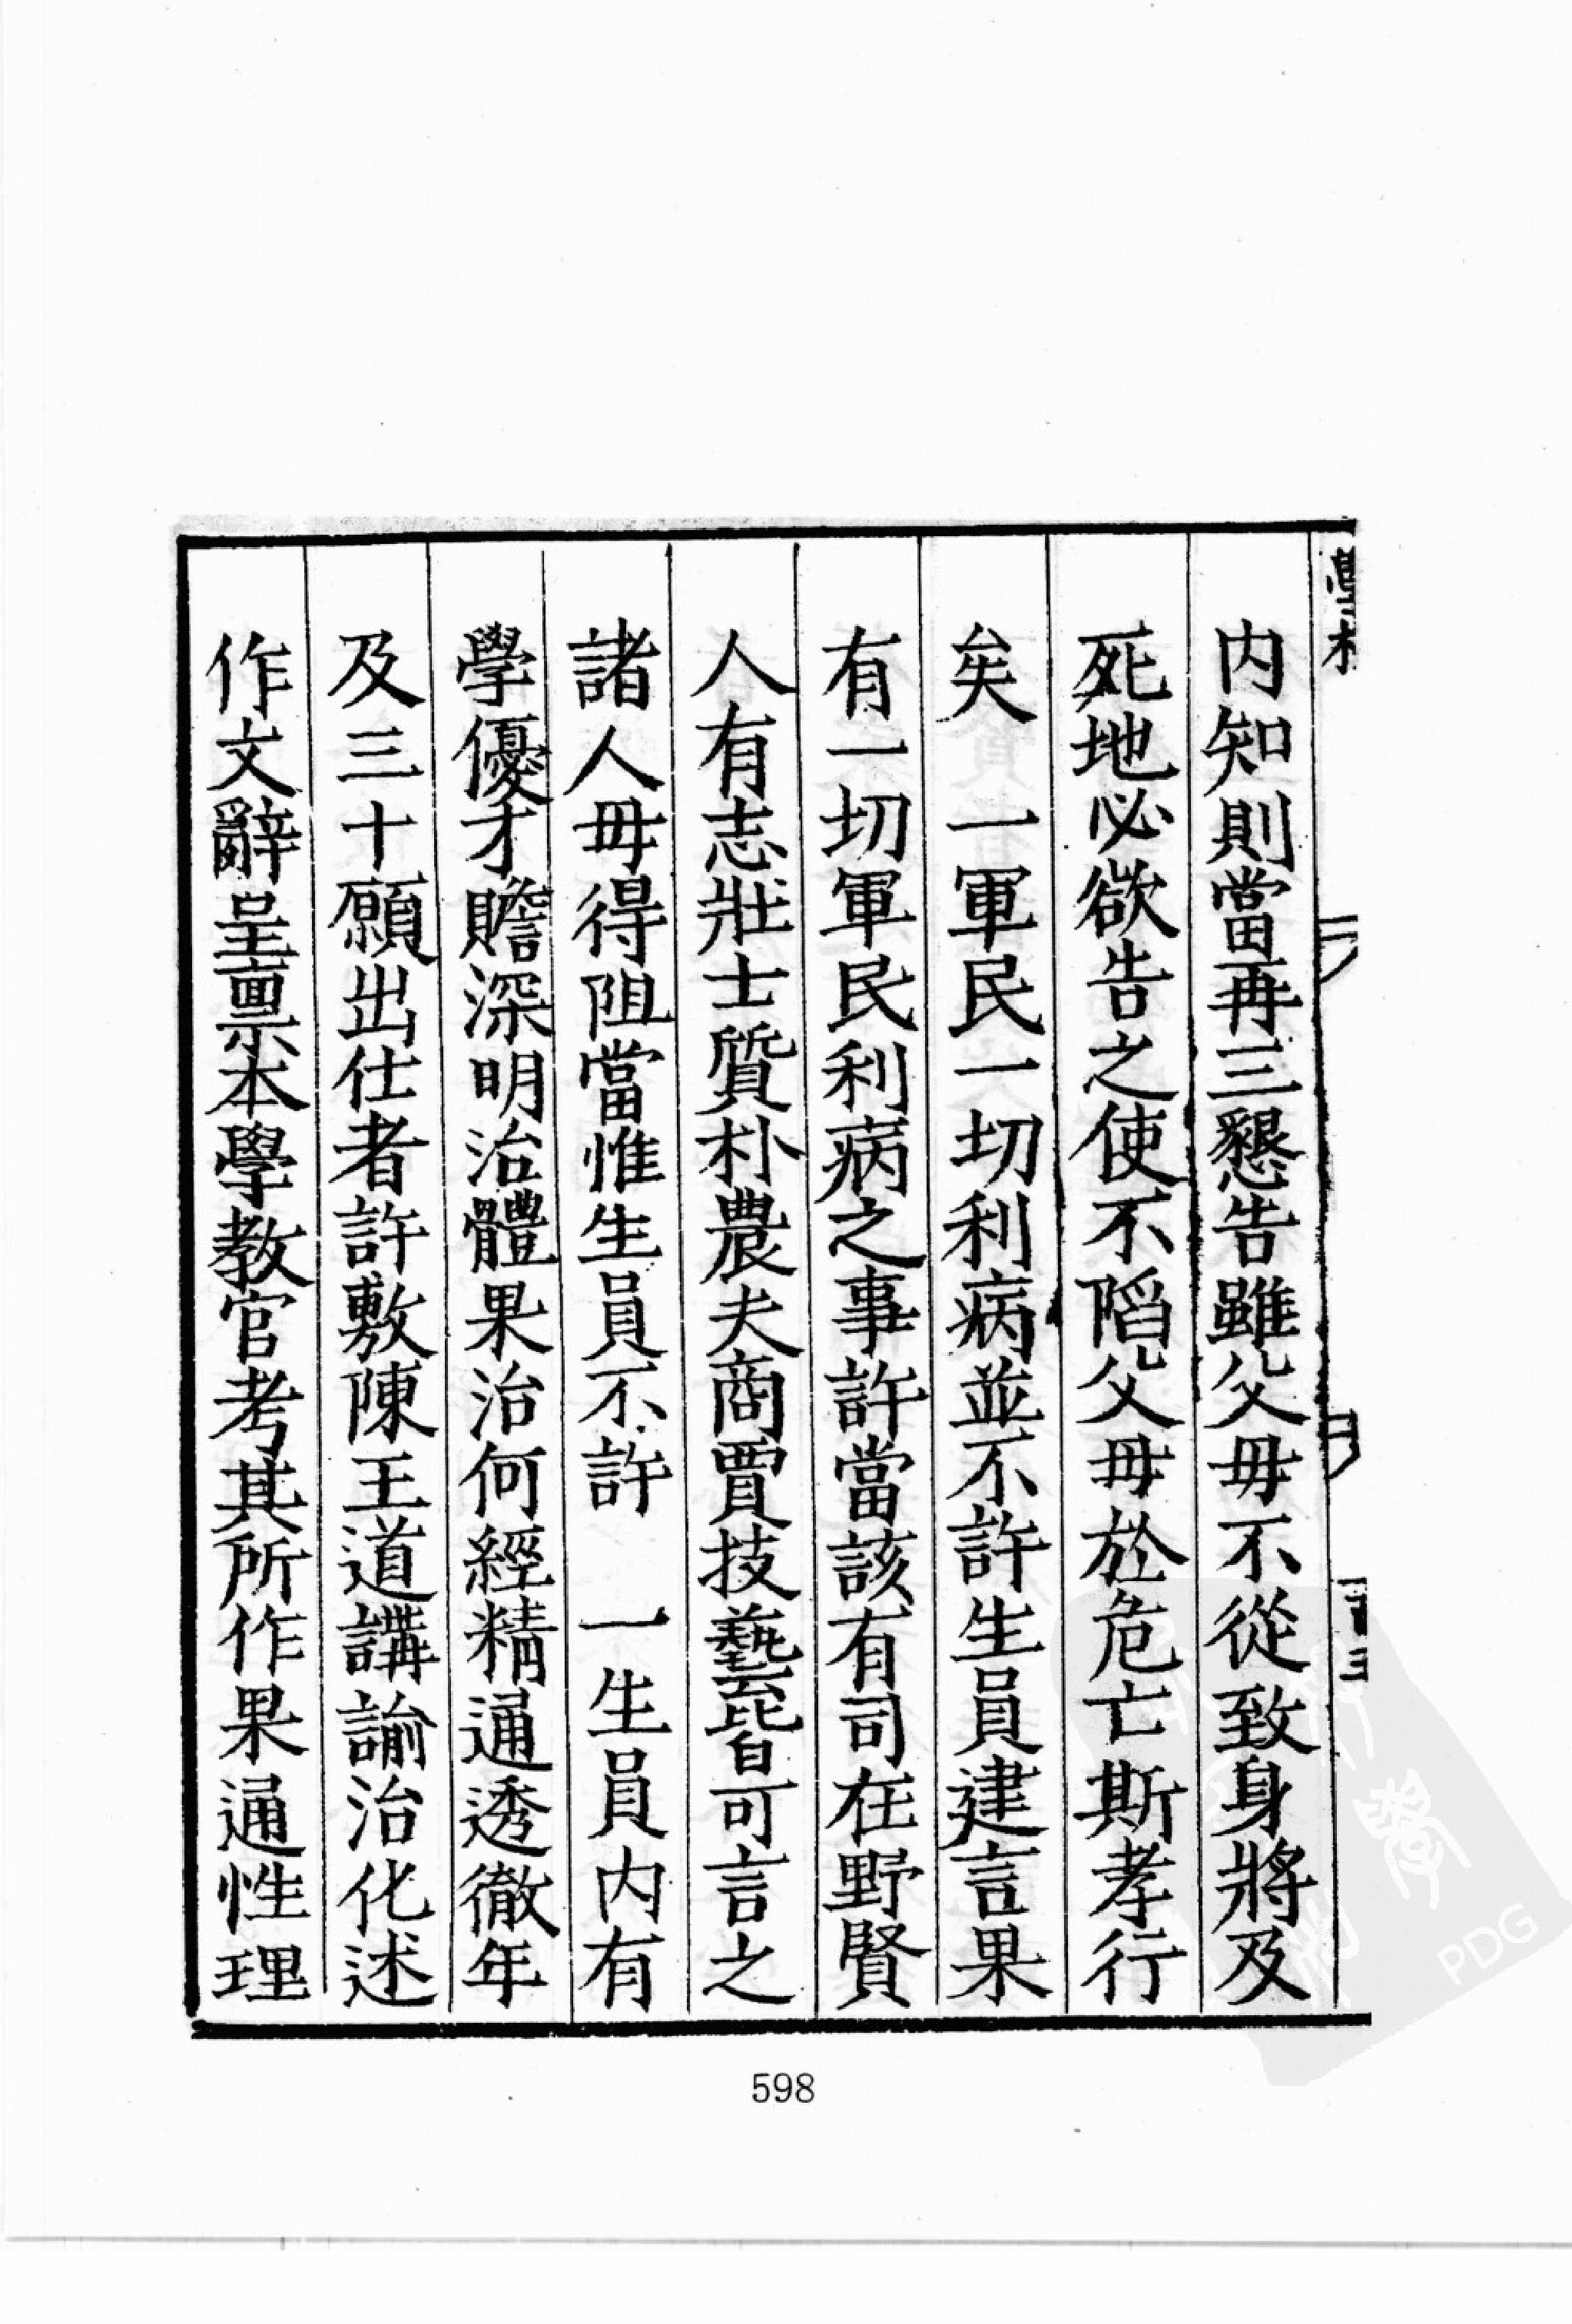 内知則當再三懇告雖父母不從致身將及
死地必欲告之使不陷父母於危亡斯孝行
矣　一軍民一切利病並不許生員建言果
有一切軍民利病之事許當該有司在野賢
人有志壯士質朴農夫商賈技藝皆可言之
諸人毋得阻當惟生員不許　一生員内有
學優才贍深明治體果治何經精通透徹年
及三十願出仕者許敷陳王道講諭治化述
作文辭呈禀本學教官考其所作果通性理
598
PDG